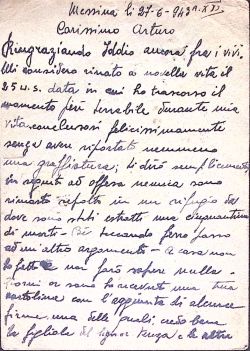 Messina li 27-6-943 A. XXI
Carissimo Arturo
Ringraziando Iddio ancora fra i vivi.
Mi considero rinato a novella vita il
25 u.s. data in cui ho trascorso il
momento più terribile durante mia
vita conclusosi felicissimamente
senza aver riportato nemmeno
una graffiatura; ti dirò semplicemente
in seguito ad offesa nemica sono
rimasto sepolto in un rifugio da
dove sono stati estratti una cinquantina
di morti - toccando ferro passo
ad un'altro argomento - A casa non
ho fatto e non farò sapere nulla -
Giorni or sono ho ricevuto una tua
cartolina con l'aggiunta di alcune
firme, una delle quali, credo bene
la figliola del signor e le altre